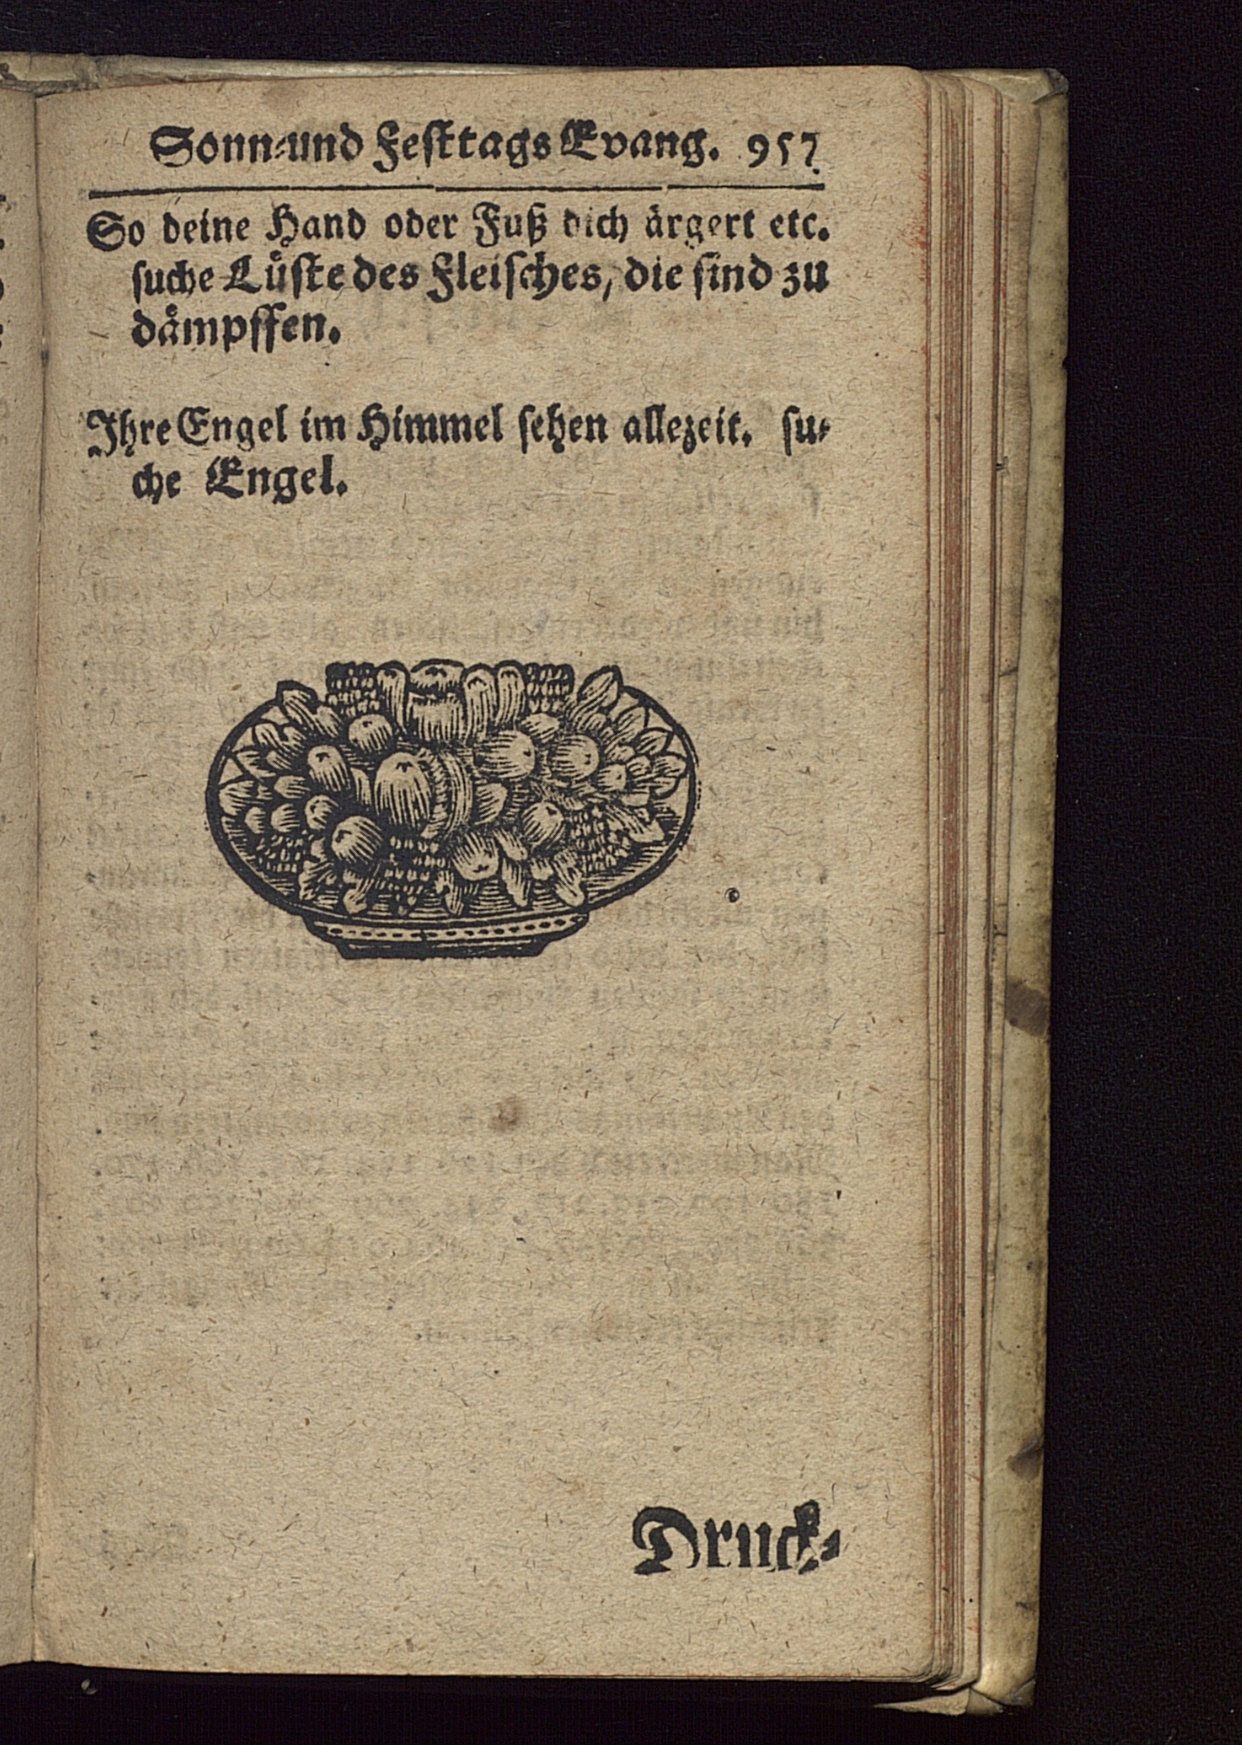 Sonn-und Festtags Evang. 957
So deine Hand oder Fuß dich ärgert etc.
suche Lüste des Fleisches, die sind zu
dämpffen.
Ihre Engel im Himmel sehen allezeit. su-
che Engel.
Druck-